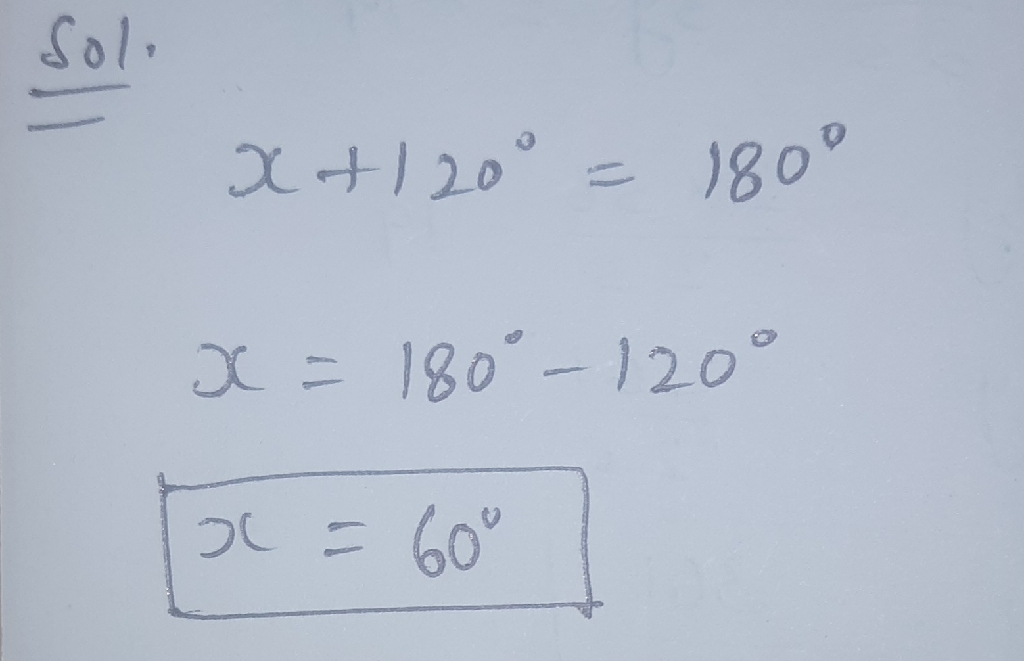 Sol.
x + 120° = 180°
x = 180° - 120°
x = 60°